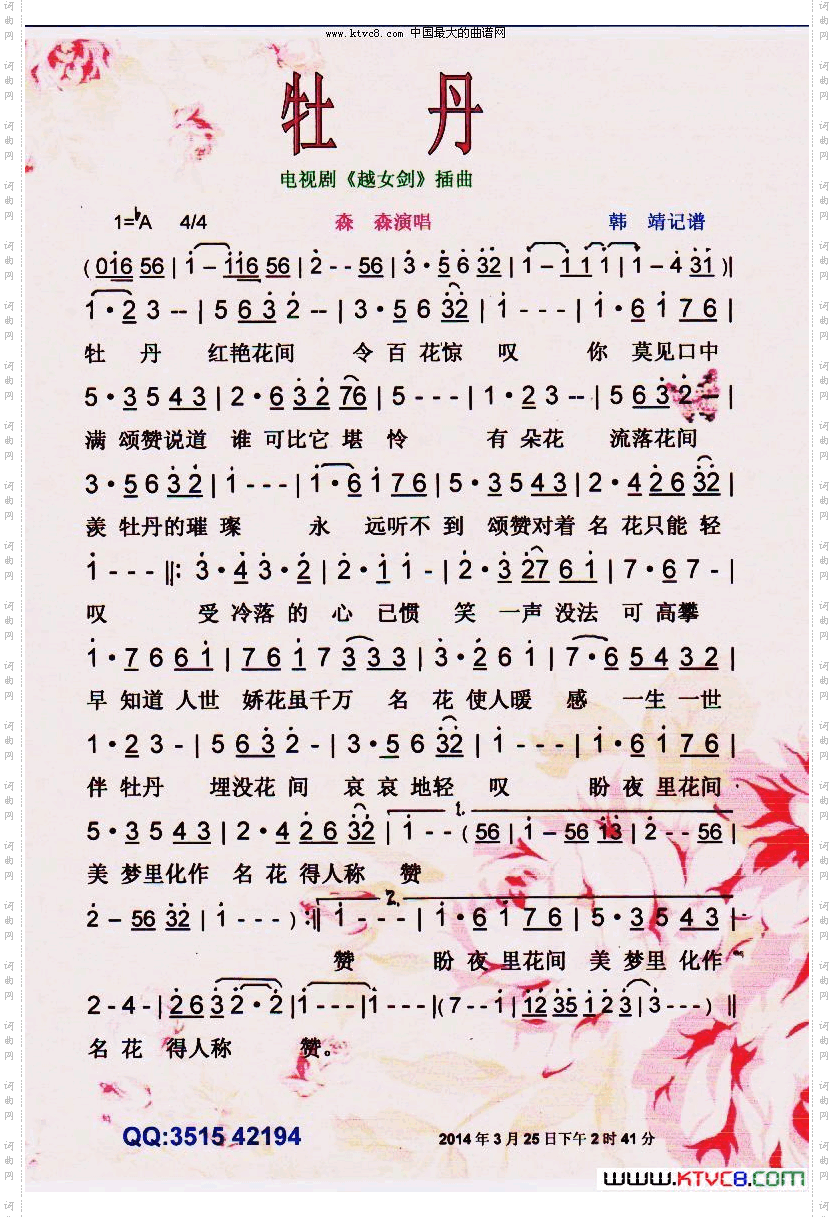 www.ktvc8.com 中国最大的曲谱网
牡 丹
电视剧《越女剑》插曲
1=♭A 4/4 森 森演唱 韩 靖记谱
(016 56 | 1 – 116 56 | 2 - - 56 | 3 · 5 6 32 | 1 – 1 1 1 | 1 – 4 31 )||
1 · 2 3 -- | 5 6 3 2 -- | 3 · 5 6 32 | 1 - - - | 1 · 6 1 7 6 |
牡 丹 红艳花间 令 百 花惊 叹 你 莫见口中
5 · 3 5 4 3 | 2 · 6 3 2 76 | 5 - - - | 1 · 2 3 -- | 5 6 3 2 – |
满 颂赞说道 谁 可比它 堪 怜 有 朵花 流落花间
3 · 5 6 3 2 | 1 - - - | 1 · 6 1 7 6 | 5 · 3 5 4 3 | 2 · 4 2 6 32 |
羡 牡丹的璀 璨 永 远听不 到 颂赞对着 名 花只能 轻
1 - - - ||: 3 · 4 3 · 2 | 2 · 1 1 - | 2 · 3 27 6 1 | 7 · 6 7 - |
叹 受 冷落 的 心 已惯 笑 一声 没法 可 高攀
1 · 7 6 6 1 | 7 6 1 7 3 3 3 | 3 · 2 6 1 | 7 · 6 5 4 3 2 |
早 知道 人世 娇花虽千万 名 花 使人暖 感 一生 一世
1 · 2 3 - | 5 6 3 2 - | 3 · 5 6 32 | 1 - - - | 1 · 6 1 7 6 |
伴 牡丹 埋没花 间 哀 哀 地轻 叹 盼 夜 里花间
5 · 3 5 4 3 | 2 · 4 2 6 32 | 1. 1 - - ( 56 | 1 – 56 13 | 2 - - 56 |
美 梦里化作 名 花 得人称 赞
2 – 56 32 | 1 - - - ) :|| 2. 1 - - - | 1 · 6 1 7 6 | 5 · 3 5 4 3 |
赞 盼 夜 里花间 美 梦里 化作
2 - 4 - | 2 6 3 2 · 2 | 1 - - - | 1 - - - | ( 7 - - 1 | 12 35 1 2 3 | 3 - - - ) ||
名 花 得人称 赞。
QQ:3515 42194
2014 年 3 月 25 日下午 2 时 41 分
www.KTVC8.com
词曲网